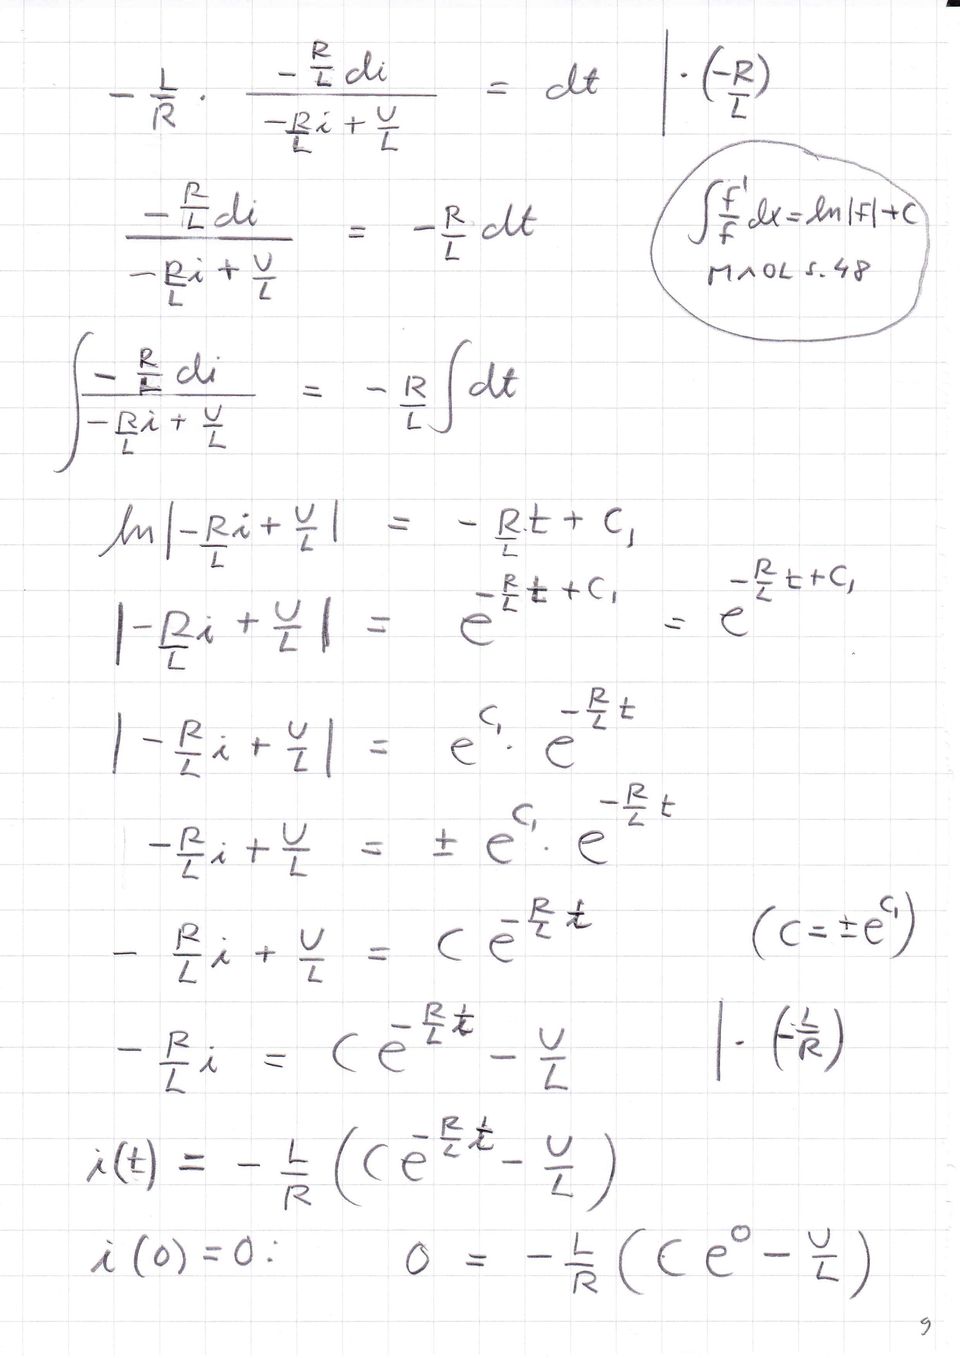 - L/R · (-R/L di)/(-R/L i + U/L) = dt | · (-R/L)
(-R/L di)/(-R/L i + U/L) = -R/L dt
∫ f'/f dx = ln|f| + C
MAOL s. 48
∫ (-R/L di)/(-R/L i + U/L) = -R/L ∫ dt
ln|-R/L i + U/L| = -R/L t + C₁
|-R/L i + U/L| = e^(-R/L t + C₁) = e^(-R/L t + C₁)
|-R/L i + U/L| = e^(C₁) · e^(-R/L t)
-R/L i + U/L = ± e^(C₁) · e^(-R/L t)
- R/L i + U/L = C e^(-R/L t) (C = ±e^(C₁))
- R/L i = C e^(-R/L t) - U/L | · (-L/R)
i(t) = - L/R (C e^(-R/L t) - U/L)
i(0) = 0: 0 = - L/R (C e^0 - U/L)
9